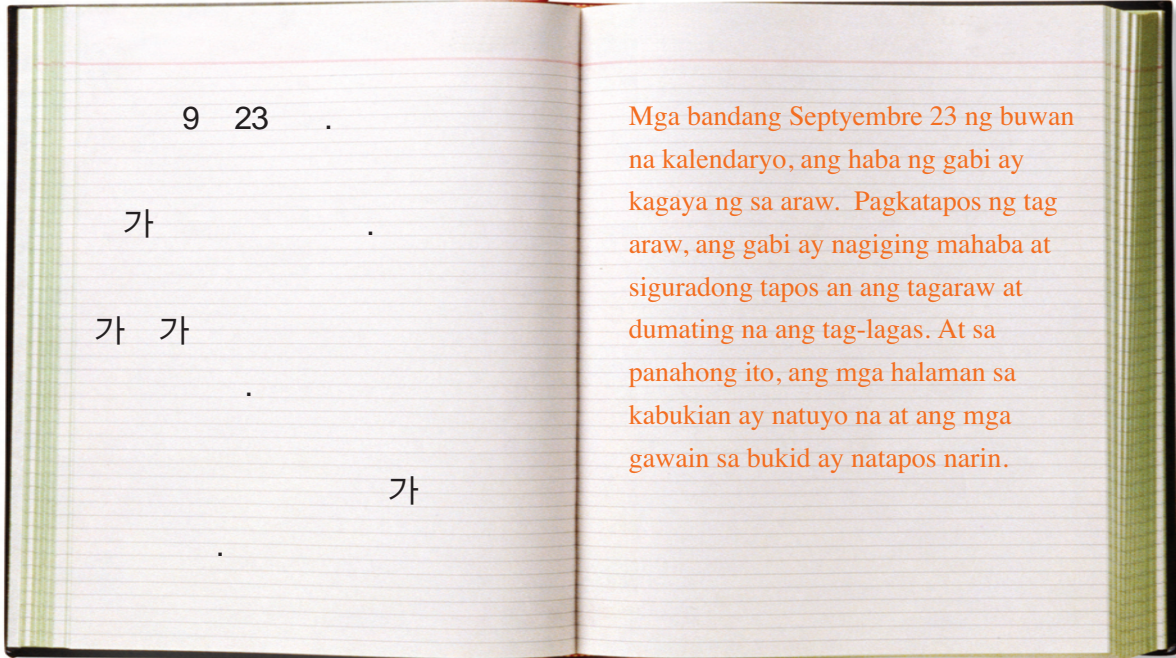 9 23 .
가 .
가 가
.
가
.
Mga bandang Septyembre 23 ng buwan
na kalendaryo, ang haba ng gabi ay
kagaya ng sa araw. Pagkatapos ng tag
araw, ang gabi ay nagiging mahaba at
siguradong tapos an ang tagaraw at
dumating na ang tag-lagas. At sa
panahong ito, ang mga halaman sa
kabukian ay natuyo na at ang mga
gawain sa bukid ay natapos narin.